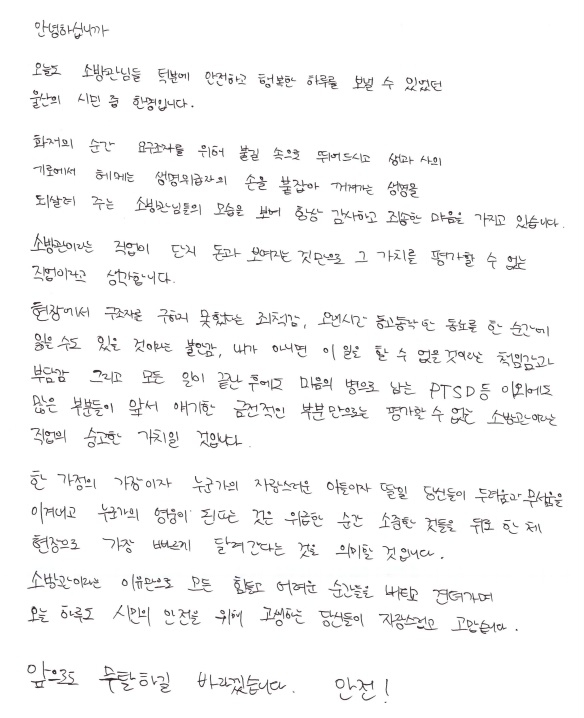 안녕하십니까
오늘도 소방관님들 덕분에 안전하고 행복한 하루를 보낼 수 있었던
울산의 시민 중 한명입니다.
화재의 순간 요구조자를 위해 불길 속으로 뛰어드시고 생과 사의
기로에서 헤메는 생명위급자의 손을 붙잡아 꺼져가는 생명을
되살려 주는 소방관님들의 모습을 보며 항상 감사하고 죄송한 마음을 가지고 있습니다.
소방관이라는 직업이 단지 돈과 보여지는 것만으로 그 가치를 평가할 수 없는
직업이라고 생각합니다.
현장에서 구조자를 구하지 못했다는 죄책감, 오랜시간 동고동락한 동료를 한 순간에
잃을 수도 있을 것이라는 불안감, 내가 아니면 이 일을 할 수 없을 것이라는 책임감과
부담감 그리고 모든 일이 끝난 후에도 마음의 병으로 남는 PTSD 등 이외에도
많은 부분들이 앞서 얘기한 금전적인 부분만으로는 평가할 수 없는 소방관이라는
직업의 숭고한 가치일 것입니다.
한 가정의 가장이자 누군가의 자랑스러운 아들이자 딸일 당신들이 두려움과 무서움을
이겨내고 누군가의 영웅이 된다는 것은 위급한 순간 소중한 것들을 뒤로 한 체
현장으로 가장 빠르게 달려간다는 것을 의미할 것입니다.
소방관이라는 이유만으로 모든 힘들고 어려운 순간들을 버티고 견뎌가며
오늘 하루도 시민의 안전을 위해 고생하는 당신들이 자랑스럽고 고맙습니다.
앞으로도 무탈하길 바라겠습니다. 안전!